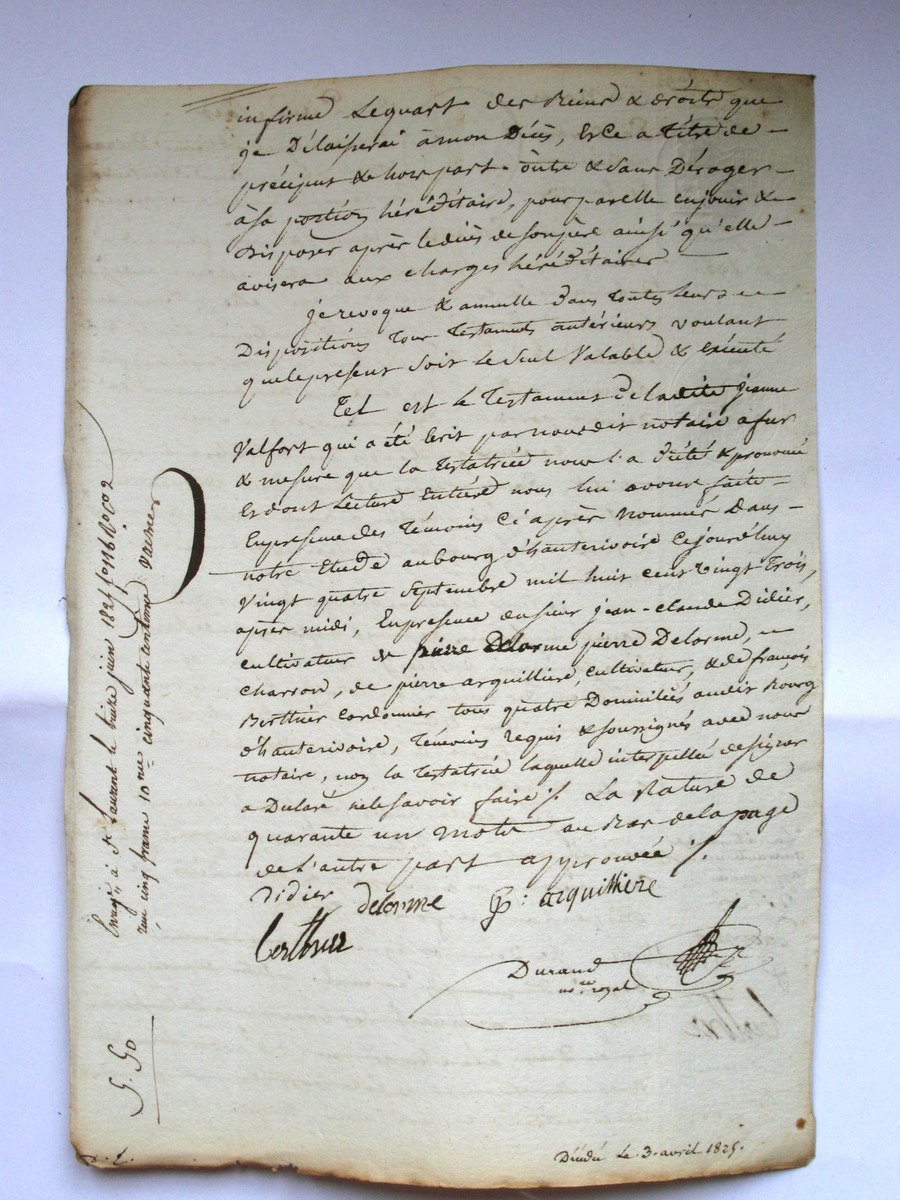 infirme Le quart des Biens & droits que
je Délaisserai à mon Décès, & Ce a titre de –
préciput & hors part. outre & Sans Déroger –
à Sa portion héréditaire, pour par elle en jouir &
Disposer après le décès de Son père ainsi qu'elle –
avisera aux charges héréditaires –
je revoque & annulle dans toutes leurs –
Dispositions tous testaments antérieurs voulant
que le present Soit le Seul Valable & Exécuté
Tel est le testament de ladite jeanne
Valfort qui a été Ecrit par nous dit notaire a fur
& mesure que la testatrice nous l'a dicté & prononcé
Et dont Lecture Entière nous lui avons faite –
En presence des témoins Ci après nommés Dans –
notre Etude au bourg d'hauterivoire Cejourd'huy
Vingt quatre Septembre mil huit cent vingt trois,
après midi, En presence du sieur jean-claude Didier,
cultivateur de pierre Delorme, –
charron, de pierre arquilliere, cultivateur, & de françois
Berthier Cordonnier tous quatre Domiciliés audit Bourg
d'hauterivoire, témoins requis & soussignés avec nous
notaire, non la testatrice laquelle interpellée de signer
a Déclaré ne le Savoir faire ./. La Rature de
quarante un mots au Bas de la page
de l'autre part approuvée ./.
Didier delorme p: arquilliere
berthier
Durand
no.re royal
Enreg.ré à St Laurent le treize juin 1825 f° 116 R° C.es 2
reçu cinq francs 10.me cinquante centimes
5. 50
Décédé Le 3. avril 1825.